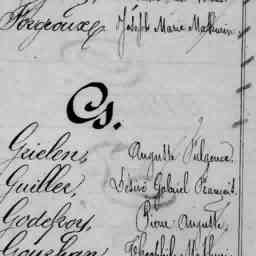 Fougoux, Joseph Marie Mathurin
Gs.
Grielen, Auguste Fulgence.
Guiller, Désiré Gabriel François.
Godefroy, Pierre Auguste,
Gouzhan, Théophile Mathurin